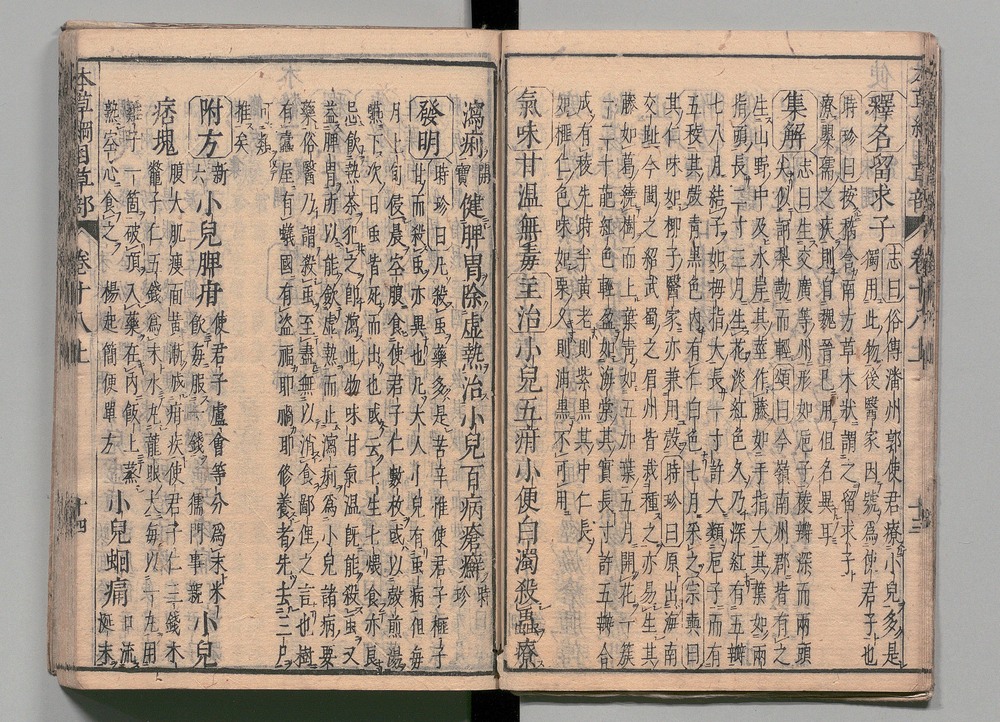 釋名留求子志曰俗傳潘州郭使君療小兒多是
獨用此物後醫家因號爲使君子也
時珍曰按嵇含南方草木狀謂之留求子
療嬰孺之疾則自魏晉已用但名異耳
集解志曰生交廣等州形如巵子稜瓣深而兩頭
尖似訶梨勒而輕頌曰今嶺南州郡皆有之
生山野中及水岸其莖作藤如手指大其葉如兩
指頭長二寸三月生花淡紅色久乃深紅有五瓣
七八月結子如拇指大長一寸許大類巵子而有
五稜其殼青黑色内有仁白色七月采之宗奭曰
其仁味如椰子醫家亦兼用殼時珍曰原出海南
交趾今閩之紹武蜀之眉州皆栽種之亦易生其
藤如葛繞樹而上葉青如五加葉五月開花一簇
一二十葩紅色輕盈如海棠其實長寸許五瓣合
成有稜先時半黃老則紫黑其中仁長
如榧仁色味如栗久則油黑不可用
氣味甘温無毒主治小兒五疳小便白濁殺蟲療
瀉痢開寶健脾胃除虛熱治小兒百病瘡癬時珍
發明時珍曰凡殺虫藥多是苦辛惟使君子榧子
甘而殺虫亦異也凡大人小兒有虫病但每
月上旬侵晨空腹食使君子仁數枚或以殼煎湯
嚥下次日虫皆死而出也或云七生七煨食亦良
忌飲熱茶犯之即瀉此物味甘氣温既能殺虫又
益脾胃所以能飲虛熱而止瀉痢爲小兒諸病要
藥俗醫乃謂殺虫至盡無以消食鄙俚之言也樹
有蠹屋有蟻國有盗福耶禍耶修養者先去三尸
可類
推矣
附方新六小兒脾疳使君子盧會等分爲末米
飲每服一錢儒門事親小兒
痞塊腹大肌瘦面黄漸成疳疾使君子仁三錢木
鱉子仁五錢爲末水丸龍眼大每以一丸用
雞子一箇破頂入藥在内飯上蒸
熟空心食之楊起簡便單方小兒蛔痛口流
涎沫
本草綱目草部 卷十八上 十四
卷十八上 十三